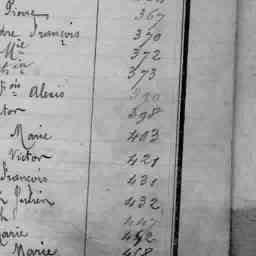 Pierre 367
dre François 370
Mie 372
373
çois Alexis 390
ctor 398
Marie 403
Victor 421
François 431
h Julien 432
h 447
Marie 452
Marie 458